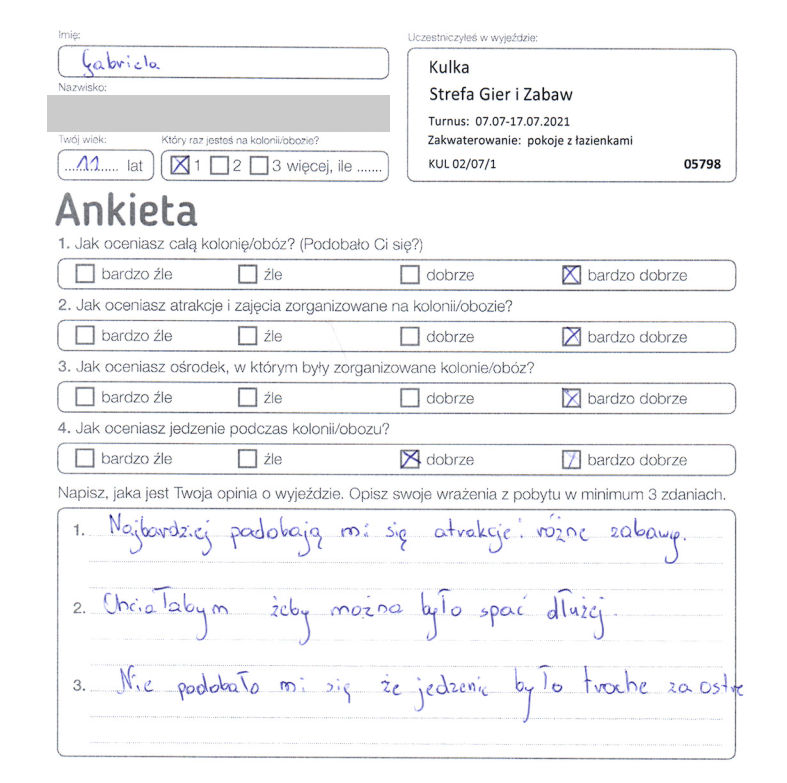 Imię:
Gabriela
Uczestniczyłeś w wyjeździe:
Kulka
Strefa Gier i Zabaw
Turnus: 07.07-17.07.2021
Zakwaterowanie: pokoje z łazienkami
KUL 02/07/1 05798
Nazwisko:
Twój wiek: Który raz jesteś na kolonii/obozie?
.....11..... lat 1 2 3 więcej, ile .......
Ankieta
1. Jak oceniasz całą kolonię/obóz? (Podobało Ci się?)
bardzo źle źle dobrze bardzo dobrze
2. Jak oceniasz atrakcje i zajęcia zorganizowane na kolonii/obozie?
bardzo źle źle dobrze bardzo dobrze
3. Jak oceniasz ośrodek, w którym były zorganizowane kolonie/obóz?
bardzo źle źle dobrze bardzo dobrze
4. Jak oceniasz jedzenie podczas kolonii/obozu?
bardzo źle źle dobrze bardzo dobrze
Napisz, jaka jest Twoja opinia o wyjeździe. Opisz swoje wrażenia z pobytu w minimum 3 zdaniach.
1. Najbardziej podobają mi się atrakcje i różne zabawy.
2. Chciałabym żeby można było spać dłużej.
3. Nie podobało mi się że jedzenie było troche za ostre